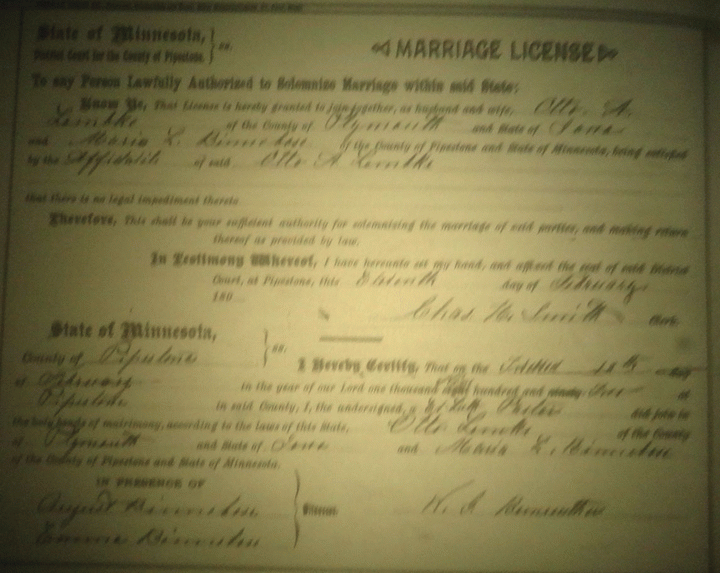 State of Minnesota,
District Court for the County of Pipestone. ss.
MARRIAGE LICENSE
To any Person Lawfully Authorized to Solemnize Marriage within said State:
Know Ye, That License is hereby granted to join together, as husband and wife, Otto A.
Lemtke of the County of Plymouth and State of Iowa
and Maria L. of the County of Pipestone and State of Minnesota, being satisfied
by the Affidavit of said Otto A. Lemtke
that there is no legal impediment thereto
Therefore, This shall be your sufficient authority for solemnizing the marriage of said parties, and making return
thereof as provided by law.
In Testimony Whereof, I have hereunto set my hand, and affixed the seal of said District
Court, at Pipestone, this day of February
Chas. H. Smith Clerk
State of Minnesota,
County of Pipestone ss.
I Hereby Certify, That on the 12th day
of February in the year of our Lord one thousand hundred and at
Pipestone in said County, I, the undersigned, a Pastor did join in
the holy bonds of matrimony, according to the laws of this State, Otto Lemtke of the County
of Plymouth and State of Iowa and Maria L.
of the County of Pipestone and State of Minnesota.
IN PRESENCE OF
August
Emma